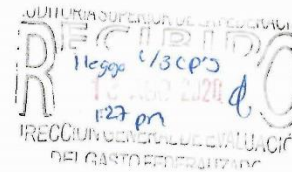 .UDITORIA SUPERIOR DE LA FEDERACI
RECIBIDO
llegga c/3 cp's
2020
1:27 pm
IRECCION GENERAL DE EVALUACIÓ
DEL GASTO FEDERALIZADO